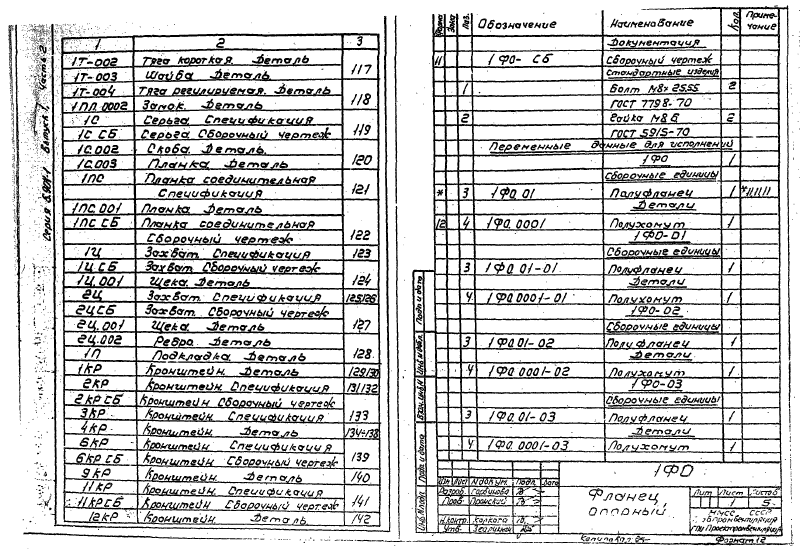 Серия 5.904-1 Выпуск 1, Часть 2
1 2 3
1Т-002 Тяга короткая. Деталь 117
1Т-003 Шайба Деталь
1Т-004 Тяга регулируемая. Деталь 118
1ПЛ.0002 Замок. Деталь
1С Серьга. Спецификация 119
1С СБ Серьга. Сборочный чертеж
1С.002 Скоба. Деталь. 120
1С.003 Планка. Деталь
1ПС Планка соединительная 121
Спецификация
1ПС.001 Планка. Деталь
1ПС СБ Планка соединительная 122
Сборочный чертеж
1Ц Захват. Спецификация 123
1Ц СБ Захват. Сборочный чертеж 124
1Ц.001 Щека. Деталь
2Ц Захват. Спецификация 125/126
2Ц СБ Захват. Сборочный чертеж
2Ц.001 Щека. Деталь 127
2Ц.002 Ребро. Деталь
1П Подкладка. Деталь 128
1КР Кронштейн. Деталь 129/130
2КР Кронштейн. Спецификация 131/132
2КР СБ Кронштейн. Сборочный чертеж
3КР Кронштейн. Спецификация 133
4КР Кронштейн. Деталь 134÷138
6КР Кронштейн. Спецификация
6КР СБ Кронштейн. Сборочный чертеж 139
9КР Кронштейн. Деталь 140
11КР Кронштейн. Спецификация
11КР СБ Кронштейн. Сборочный чертеж 141
12КР Кронштейн. Деталь 142
Формат Зона Поз. Обозначение Наименование Кол. Примечание
Документация
11 1ФО- СБ Сборочный чертеж
Стандартные изделия
1 Болт М8×25.55 2
ГОСТ 7798-70
2 Гайка М8.6 2
ГОСТ 5915-70
Переменные данные для исполнений
1ФО 1
Сборочные единицы
* 3 1ФО.01 Полуфланец 1 *11,11,11
Детали
12 4 1ФО.0001 Полухомут 1
1ФО-01
Сборочные единицы
3 1ФО.01-01 Полуфланец 1
Детали
4 1ФО.0001-01 Полухомут 1
1ФО-02
Сборочные единицы
3 1ФО.01-02 Полуфланец 1
Детали
4 1ФО.0001-02 Полухомут 1
1ФО-03
Сборочные единицы
3 1ФО.01-03 Полуфланец 1
Детали
4 1ФО.0001-03 Полухомут 1
Подп и дата
Инв.№ дубл.
Взам.инв.№
Подп и дата
Инв.№ подл.
1ФО
Изм Лист № докум. Подп. Дата
Разраб. Горбунова
Пров. Пронский
Н.контр. Колкота
Утв.
Фланец
опорный
Лит Лист Листов
1 5
ММСС СССР
Главпромвентиляция
ГПИ Проектпромвентиляция
Копировал
Формат 12